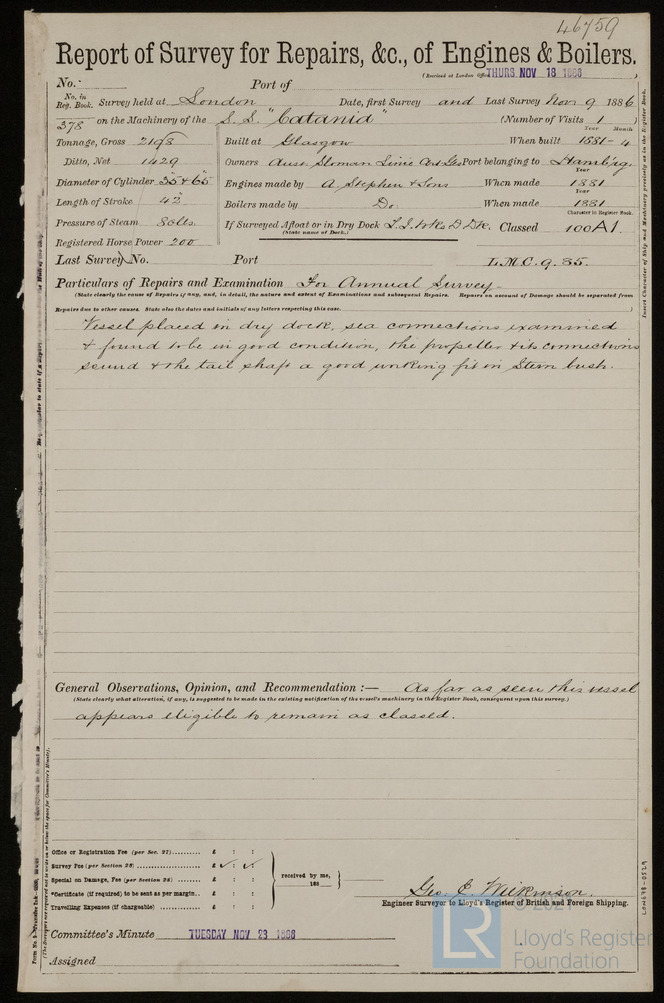 46759
Report of Survey for Repairs, &c., of Engines & Boilers.
(Received at London Office THURS. NOV 18 1886)
No. Port of
No. in Reg. Book. Survey held at London Date, first Survey and Last Survey Nov 9 1886
378 on the Machinery of the S.S. "Catania" (Number of Visits 1)
Year Month
Tonnage, Gross 2198 Built at Glasgow When built 1881-4
Ditto, Net 1429 Owners Aust. Sloman Linie Act Ges Port belonging to Hamburg
Year
Diameter of Cylinder 35 & 65 Engines made by A. Stephen & Sons When made 1881
Year
Length of Stroke 42 Boilers made by Do. When made 1881
Character in Register Book.
Pressure of Steam 80lbs. If Surveyed Afloat or in Dry Dock Classed 100A1.
(State name of Dock.)
Registered Horse Power 200
Last Survey No. Port L.M.C. 9.85.
Particulars of Repairs and Examination For Annual Survey
(State clearly the cause of Repairs if any, and, in detail, the nature and extent of Examinations and subsequent Repairs. Repairs on account of Damage should be separated from
Repairs due to other causes. State also the dates and initials of any letters respecting this case.)
Vessel placed in dry dock, sea connections examined
& found to be in good condition, the propeller & its connections
sound & the tail shaft a good working fit in Stern bush.
General Observations, Opinion, and Recommendation :— As far as seen this vessel
(State clearly what alteration, if any, is suggested to be made in the existing notification of the vessel's machinery in the Register Book, consequent upon this survey.)
appears eligible to remain as classed.
Office or Registration Fee (per Sec. 27) £ : :
Survey Fee (per Section 28) £ : :
Special on Damage, Fee (per Section 28) £ : :
*Certificate (if required) to be sent as per margin £ : :
Travelling Expenses (if chargeable) £ : :
received by me,
188
Geo. E. Wilkinson.
Engineer Surveyor to Lloyd's Register of British and Foreign Shipping.
Committee's Minute TUESDAY NOV 23 1886
Assigned
Insert Character of Ship and Machinery precisely as in the Register Book.
(The Surveyors are requested not to write on or below the space for Committee's Minute).
LON698-0529
© 2021
LR
Lloyd's Register
Foundation